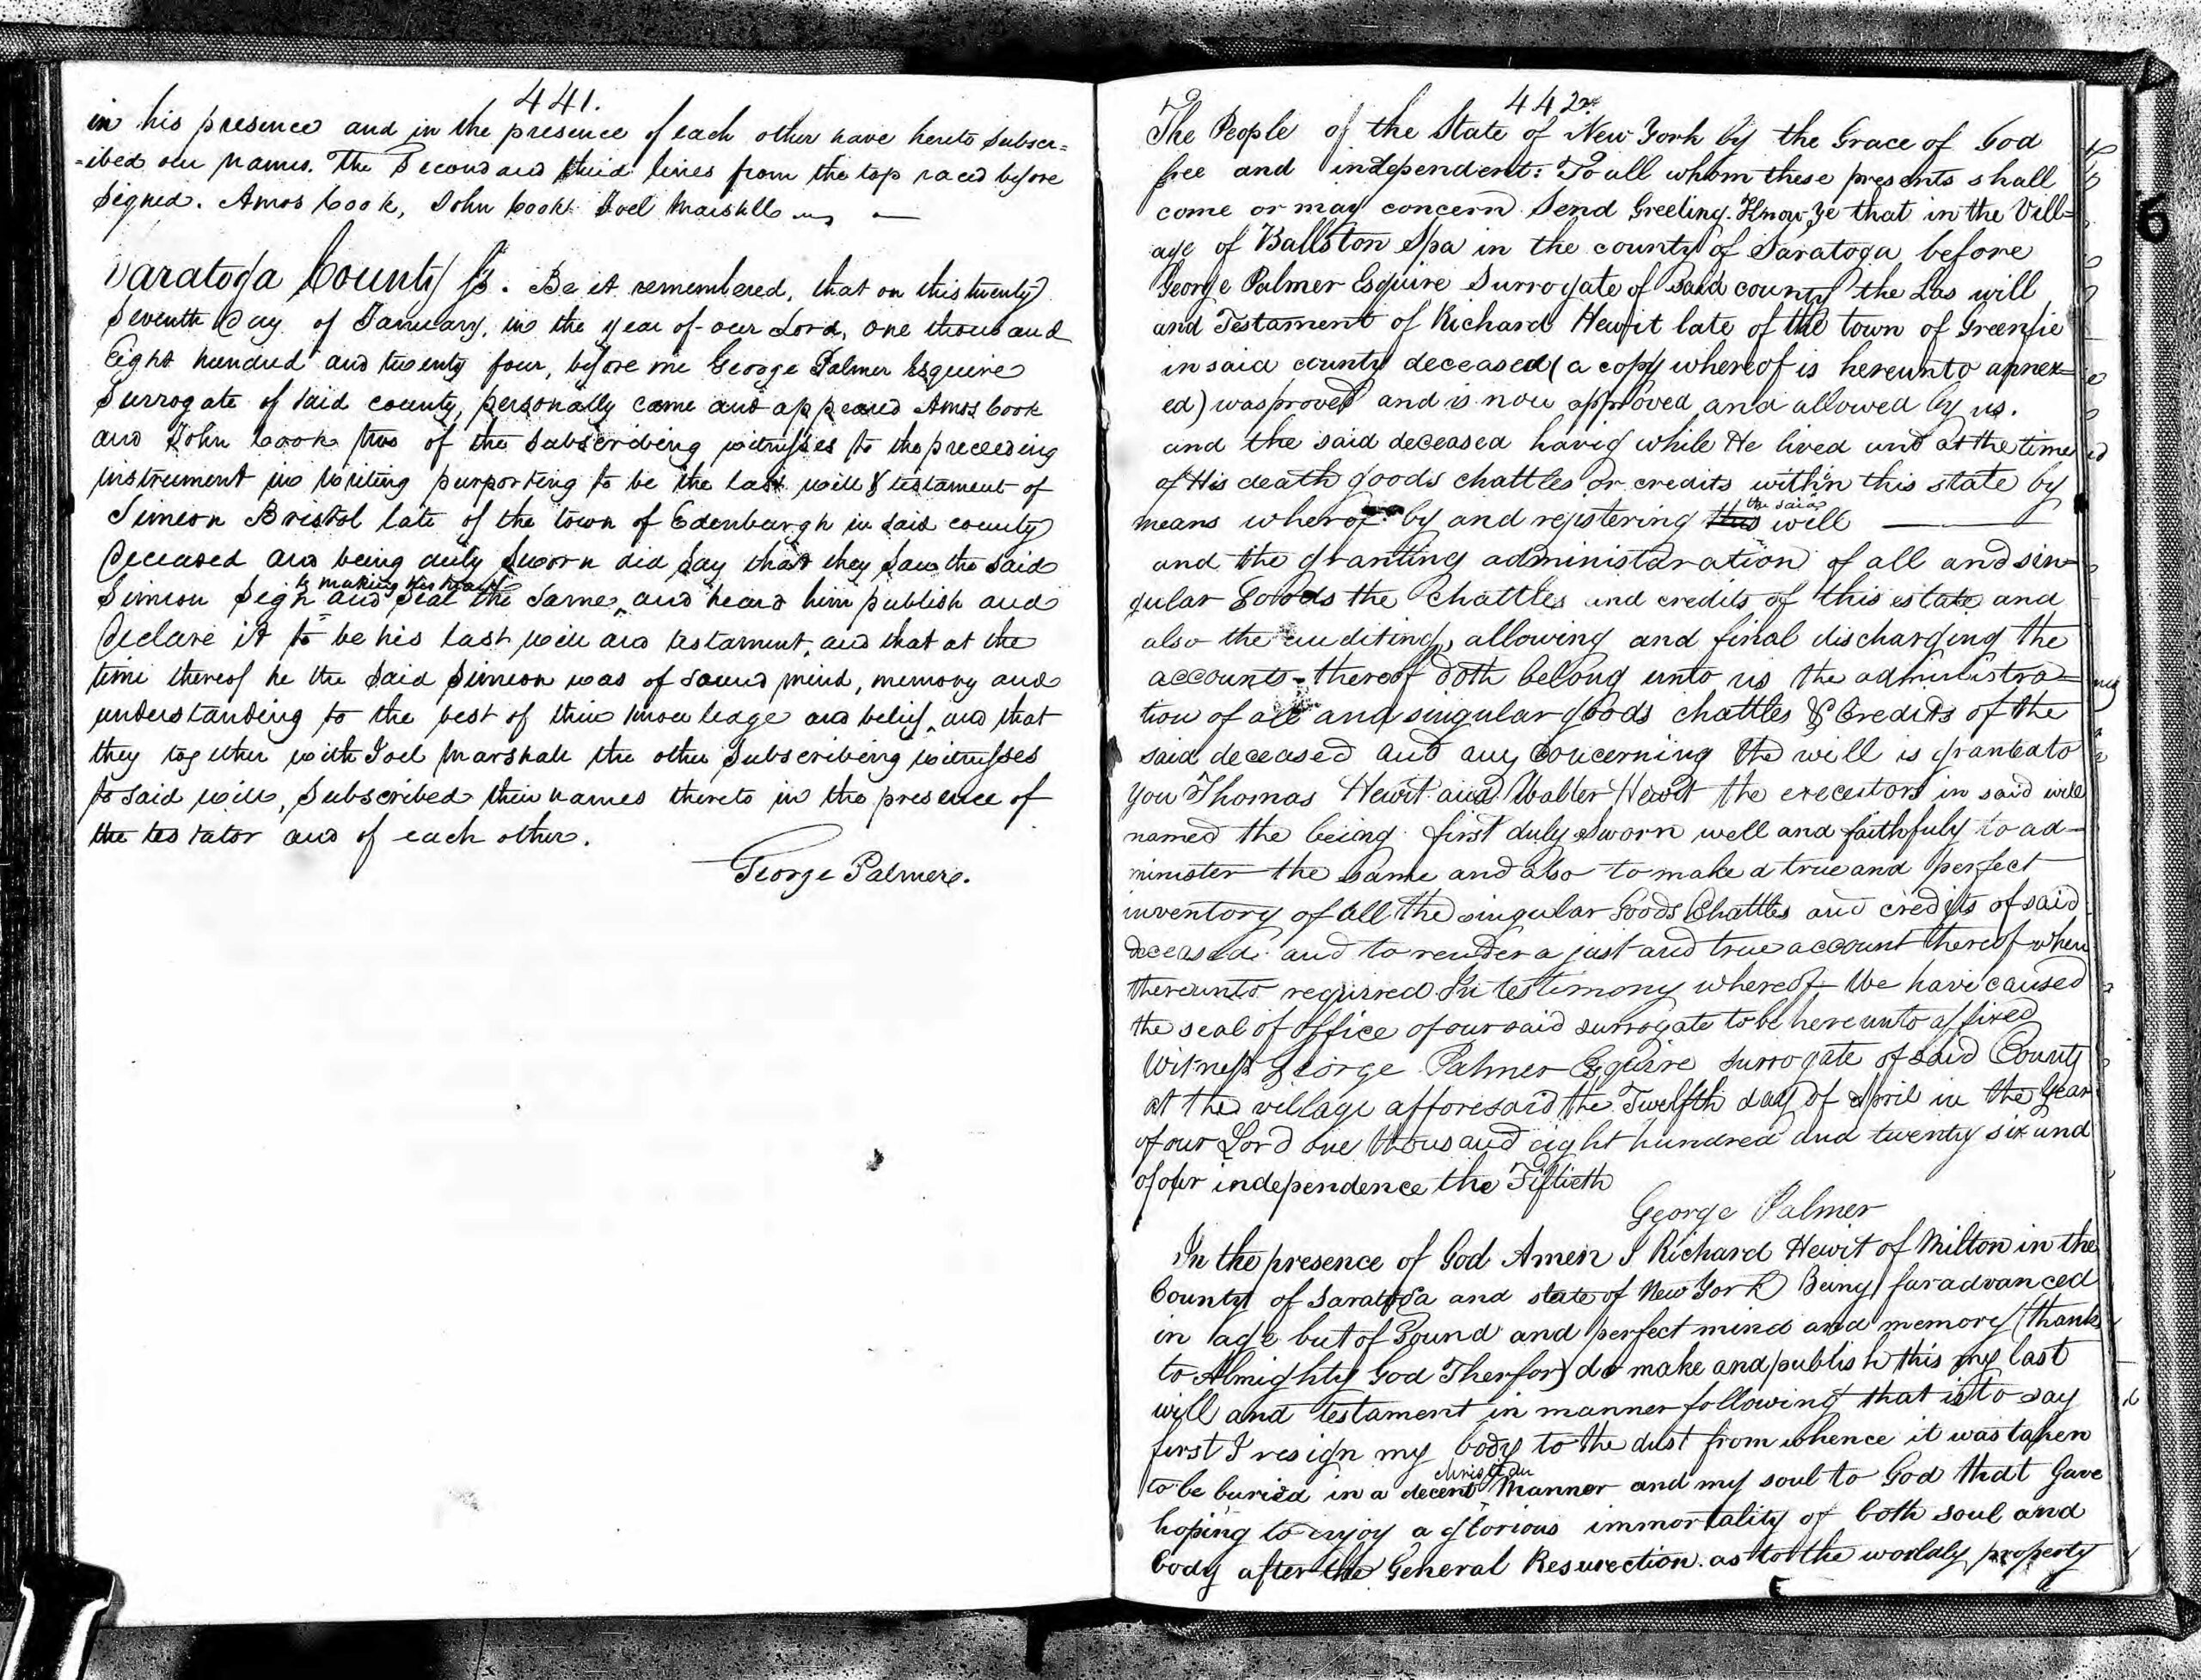 441.
in his presence and in the presence of each other have hereto subscr=
=ibed our names. The Second and third lines from the top raced before
signed. Amos Cook, John Cook Joel Marshall
Saratoga County ss. Be it remembered, that on this twenty
Seventh Day of January, in the year of our Lord, one thousand
Eight hundred and twenty four, before me George Palmer Esquire
Surrogate of said county, personally came and appeared Amos Cook
and John Cook two of the subscribing witnesses to the preceeding
instrument in writing purporting to be the last will & testament of
Simeon Bristol late of the town of Edenburgh in said county
Deceased and being duly sworn did say that they saw the said
by making his mark
Simeon Sign and seal the same, and heard him publish and
Declare it to be his last will and testament, and that at the
time thereof he the said Simeon was of sound mind, memory and
understanding to the best of their knowledge and belief, and that
they together with Joel Marshall the other subscribing witnesses
to said will, subscribed their names thereto in the presence of
the testator and of each other.
George Palmer.
442
The People of the State of New York by the Grace of God
free and independent: To all whom these presents shall
come or may concern Send Greeting. Know Ye that in the Vill=
age of Ballston Spa in the county of Saratoga before
George Palmer Esquire Surrogate of said county the Las will
and Testament of Richard Hewit late of the town of Greenfie
in said county deceased (a copy whereof is hereunto annex=
ed) was proved and is now approved and allowed by us.
and the said deceased havig while He lived and at the time
of His death goods chattles or credits within this state by
the said
means wherof by and registering this will
and the granting administaration of all and sin-
gular Goods the Chattles and credits of this estate and
also the auditing, allowing and final discharging the
accounts thereof doth belong unto us the administra=
tion of all and singular goods chattles & Credits of the
said deceased and any concerning the will is granted to
you Thomas Hewit and Walter Hewit the executors in said will
named the being first duly Sworn well and faithfuly to ad-
minister the same and also to make a true and perfect
inventory of all the singular Goods Chattles and credits of said
deceased and to render a just and true account thereof when
thereunto required In testimony whereof We have caused
the seal of office of our said surrogate to be hereunto affixed
Witness George Palmer Esquire Surrogate of said County
at the village afforesaid the Twelfth day of April in the Year
of our Lord one thousand eight hundred and twenty six and
of our independence the Fiftieth
George Palmer
In the presence of God Amen I Richard Hewit of Milton in the
County of Saratoga and state of New York Being far advanced
in age but of Sound and perfect mind and memory (thanks
to Almighty God Therfor) do make and publish this my last
will and testament in manner following that is to say
first I resign my body to the dust from whence it was taken
christian
to be buried in a decent Manner and my soul to God that Gave
hoping to enjoy a glorious immortality of both soul and
body after the General Resurection. as to the worldly property